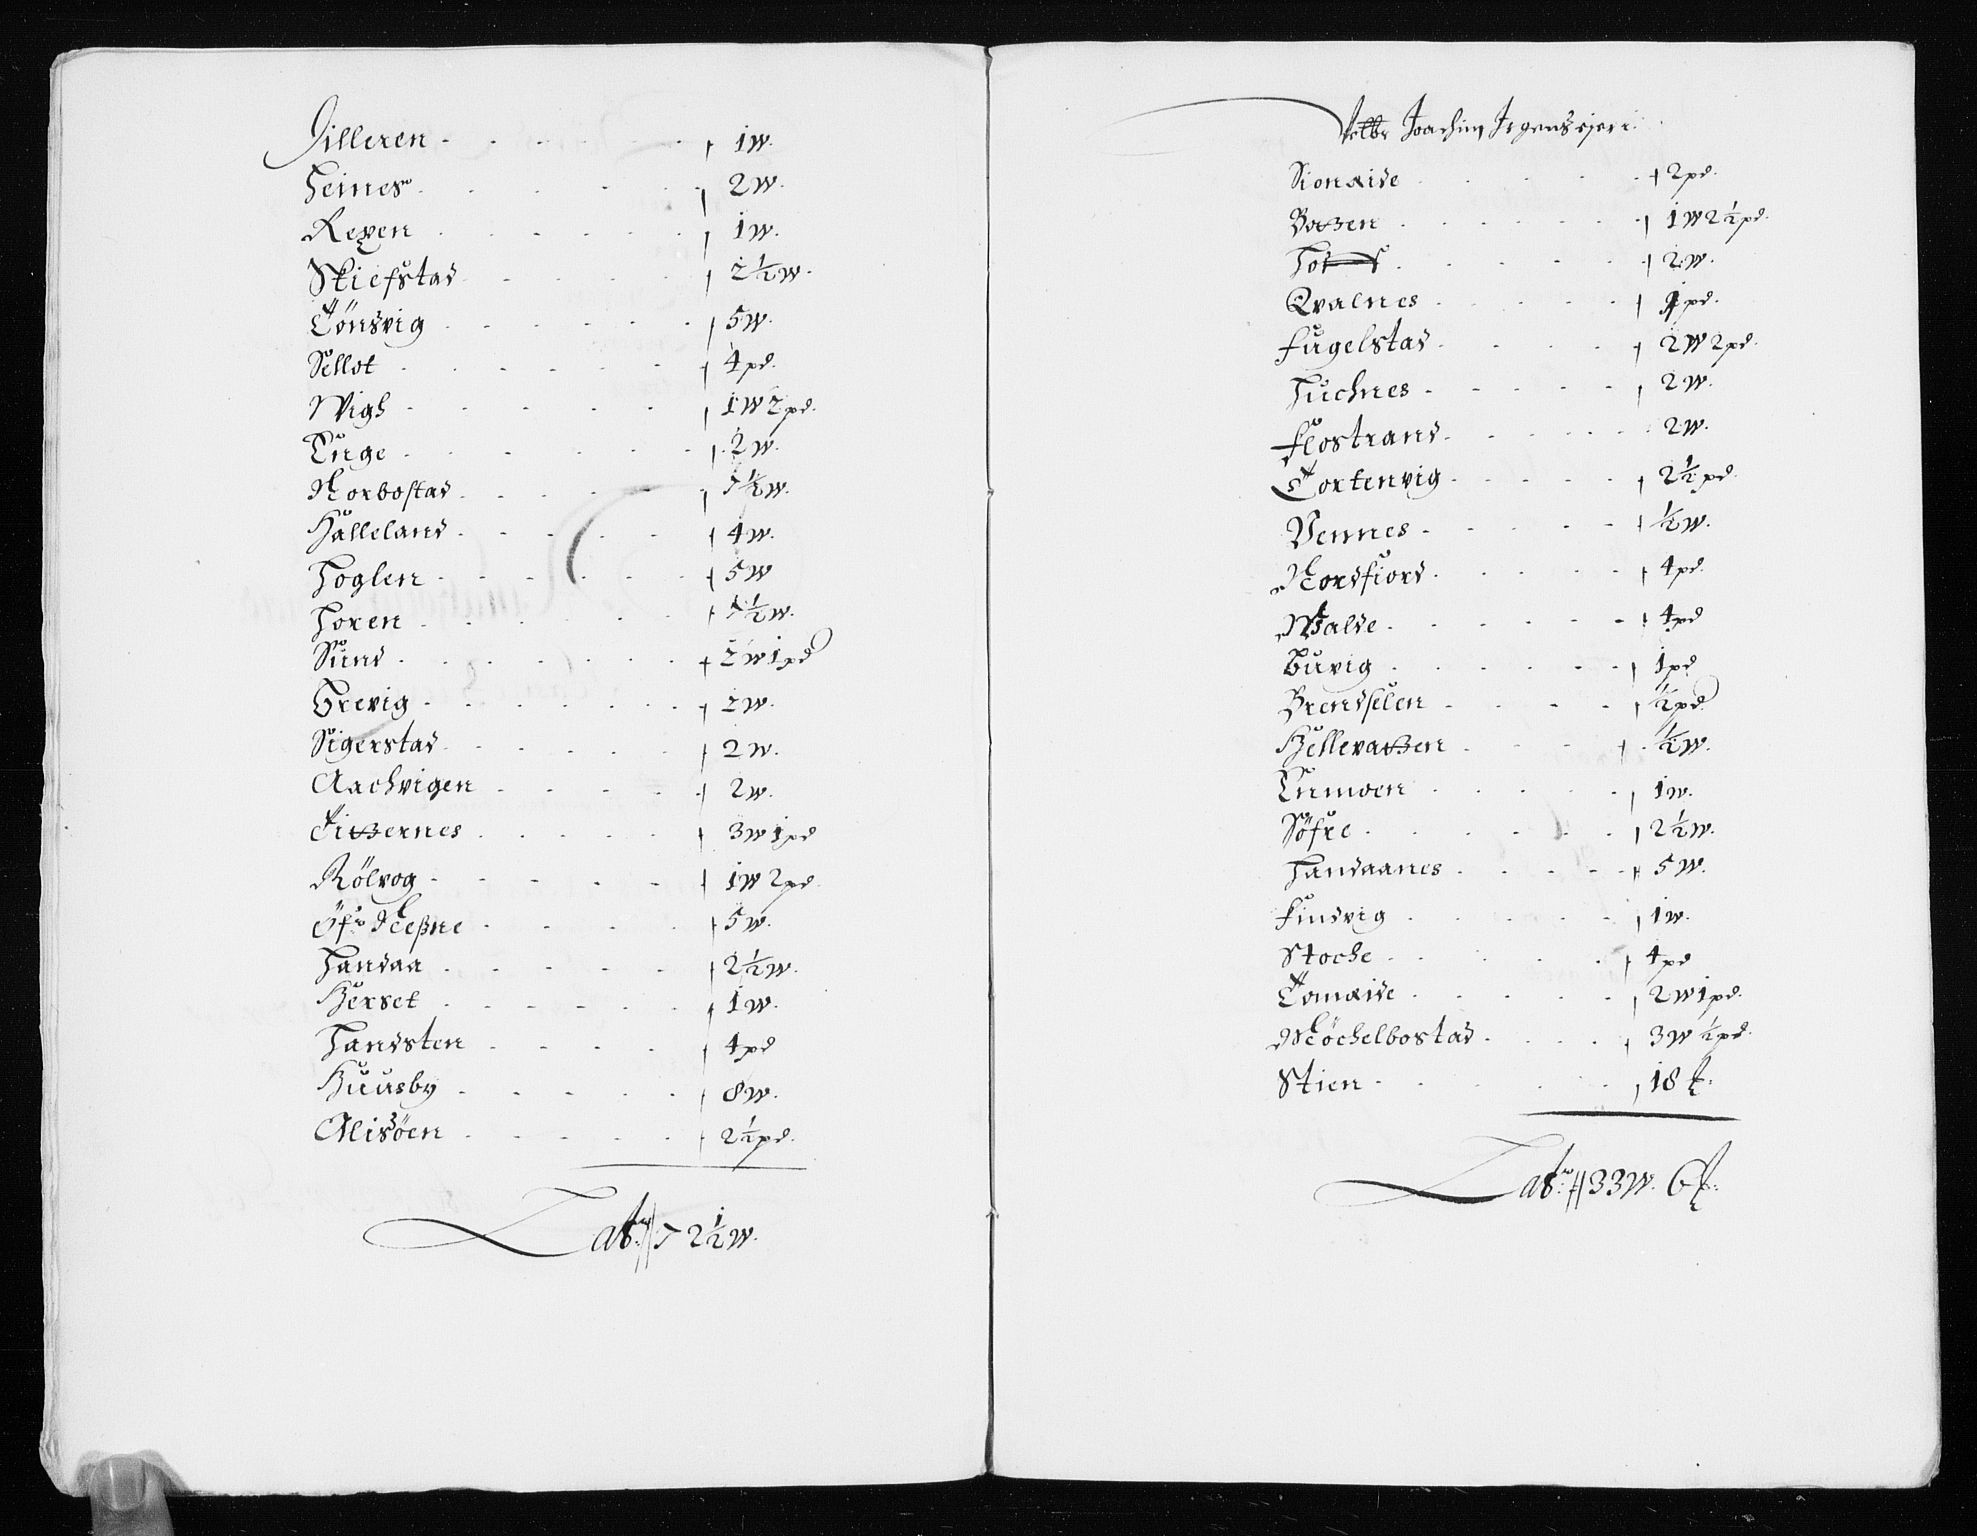 Jilleren - 1 w.
Heines - 2 w.
Rexen - 1 w.
Skiefstad - 2½ w.
Tönsvig - 5 w.
Sellot - 4 pd.
Wigh - 1 w 2 pd.
Enge - 2 w.
Norbostad - 7½ w.
Halleland - 4 w.
Hoglen - 5 w
Horen - 7½ w.
Sund - 2 w 1 pd
Grevig - 2 w.
Sigerstad - 2 w.
Aachvigen - 2 w.
Titzernes - 3 w 1 pd
Rölvog - 1 w 2 pd.
Öfr Neßne - 5 w.
Handaa - 2½ w.
Herset - 1 w.
Handsten - 4 pd
Huusby - 8 w.
Alisöen - 2½ pd.
Lats 72½ w.
Joachim Irgens ejer
Sionæide - 2 pd.
Batzen - 1 w 2½ pd.
2 w.
Qvalnes - 1 pd.
Fugelstad - 2 w 2 pd.
Huchnes - 2 w.
Flostrand - 2 w.
Tortenvig - 2½ pd.
Vennes - ½ w.
Nordfiord - 4 pd.
Walde - 4 pd
Buvig - 1 pd
Brendselen - ½ pd
Hellevatzen - ½ w.
Enmoen - 1 w.
Söfre - 2½ w.
Handaanes - 5 w.
Findvig - 1 w.
Stoche - 4 pd
Tomæide - 2 w 1 pd.
Möchelbostad - 3 w ½ pd.
Stien - 18 ℔.
Lats 33 w. 6 ℔.